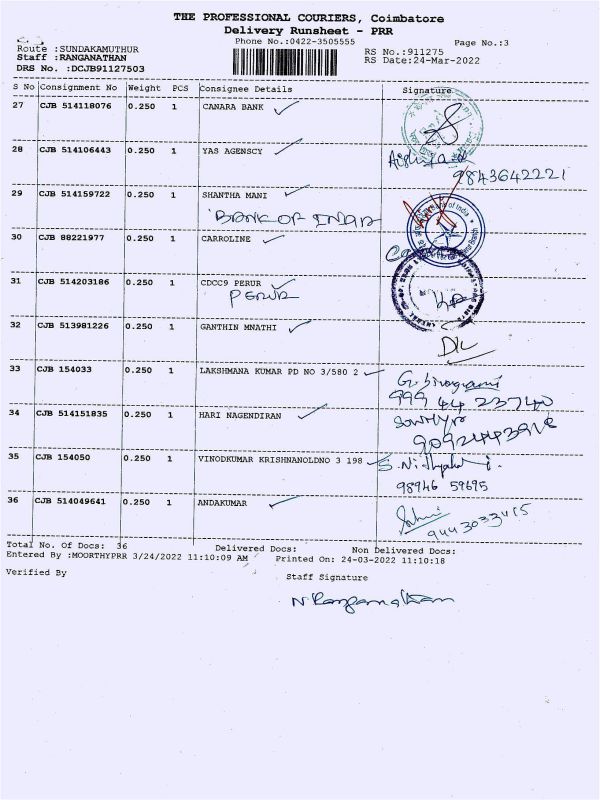 THE PROFESSIONAL COURIERS, Coimbatore
Delivery Runsheet - PRR
Phone No.:0422-3505555
Page No.:3
Route :SUNDAKAMUTHUR
RS No.:911275
Staff :RANGANATHAN
RS Date:24-Mar-2022
DRS No. :DCJB91127503
S No Consignment No Weight PCS Consignee Details Signature
27 CJB 514118076 0.250 1 CANARA BANK
28 CJB 514106443 0.250 1 YAS AGENSCY
9843642221
29 CJB 514159722 0.250 1 SHANTHA MANI
BANK OF INDIA
30 CJB 88221977 0.250 1 CARROLINE
31 CJB 514203186 0.250 1 CDCC9 PERUR
PERUR
32 CJB 513981226 0.250 1 GANTHIN MNATHI
33 CJB 154033 0.250 1 LAKSHMANA KUMAR PD NO 3/580 2
999 44 23740
34 CJB 514151835 0.250 1 HARI NAGENDIRAN
Sowmya
35 CJB 154050 0.250 1 VINODKUMAR KRISHNANOLDNO 3 198
98946 59695
36 CJB 514049641 0.250 1 ANDAKUMAR
9443033415
Total No. Of Docs: 36 Delivered Docs: Non Delivered Docs:
Entered By :MOORTHYPRR 3/24/2022 11:10:09 AM Printed On: 24-03-2022 11:10:18
Verified By
Staff Signature
N Ranganathan